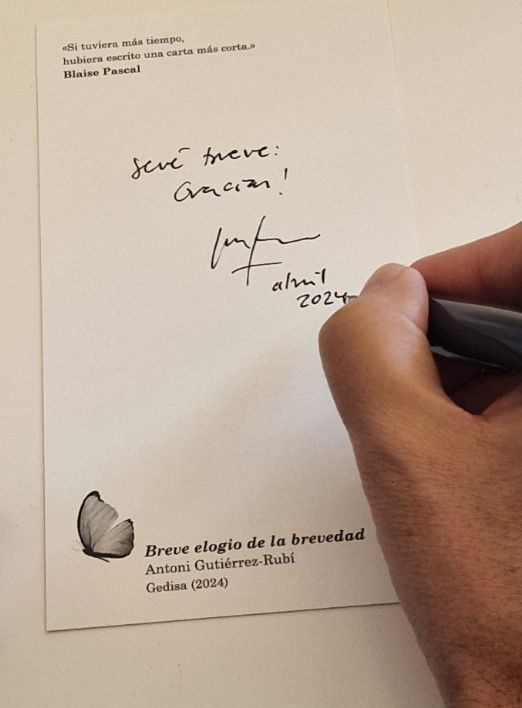 «Si tuviera más tiempo,
hubiera escrito una carta más corta.»
Blaise Pascal
Seré breve:
Gracias!
abril
2024
Breve elogio de la brevedad
Antoni Gutiérrez-Rubí
Gedisa (2024)